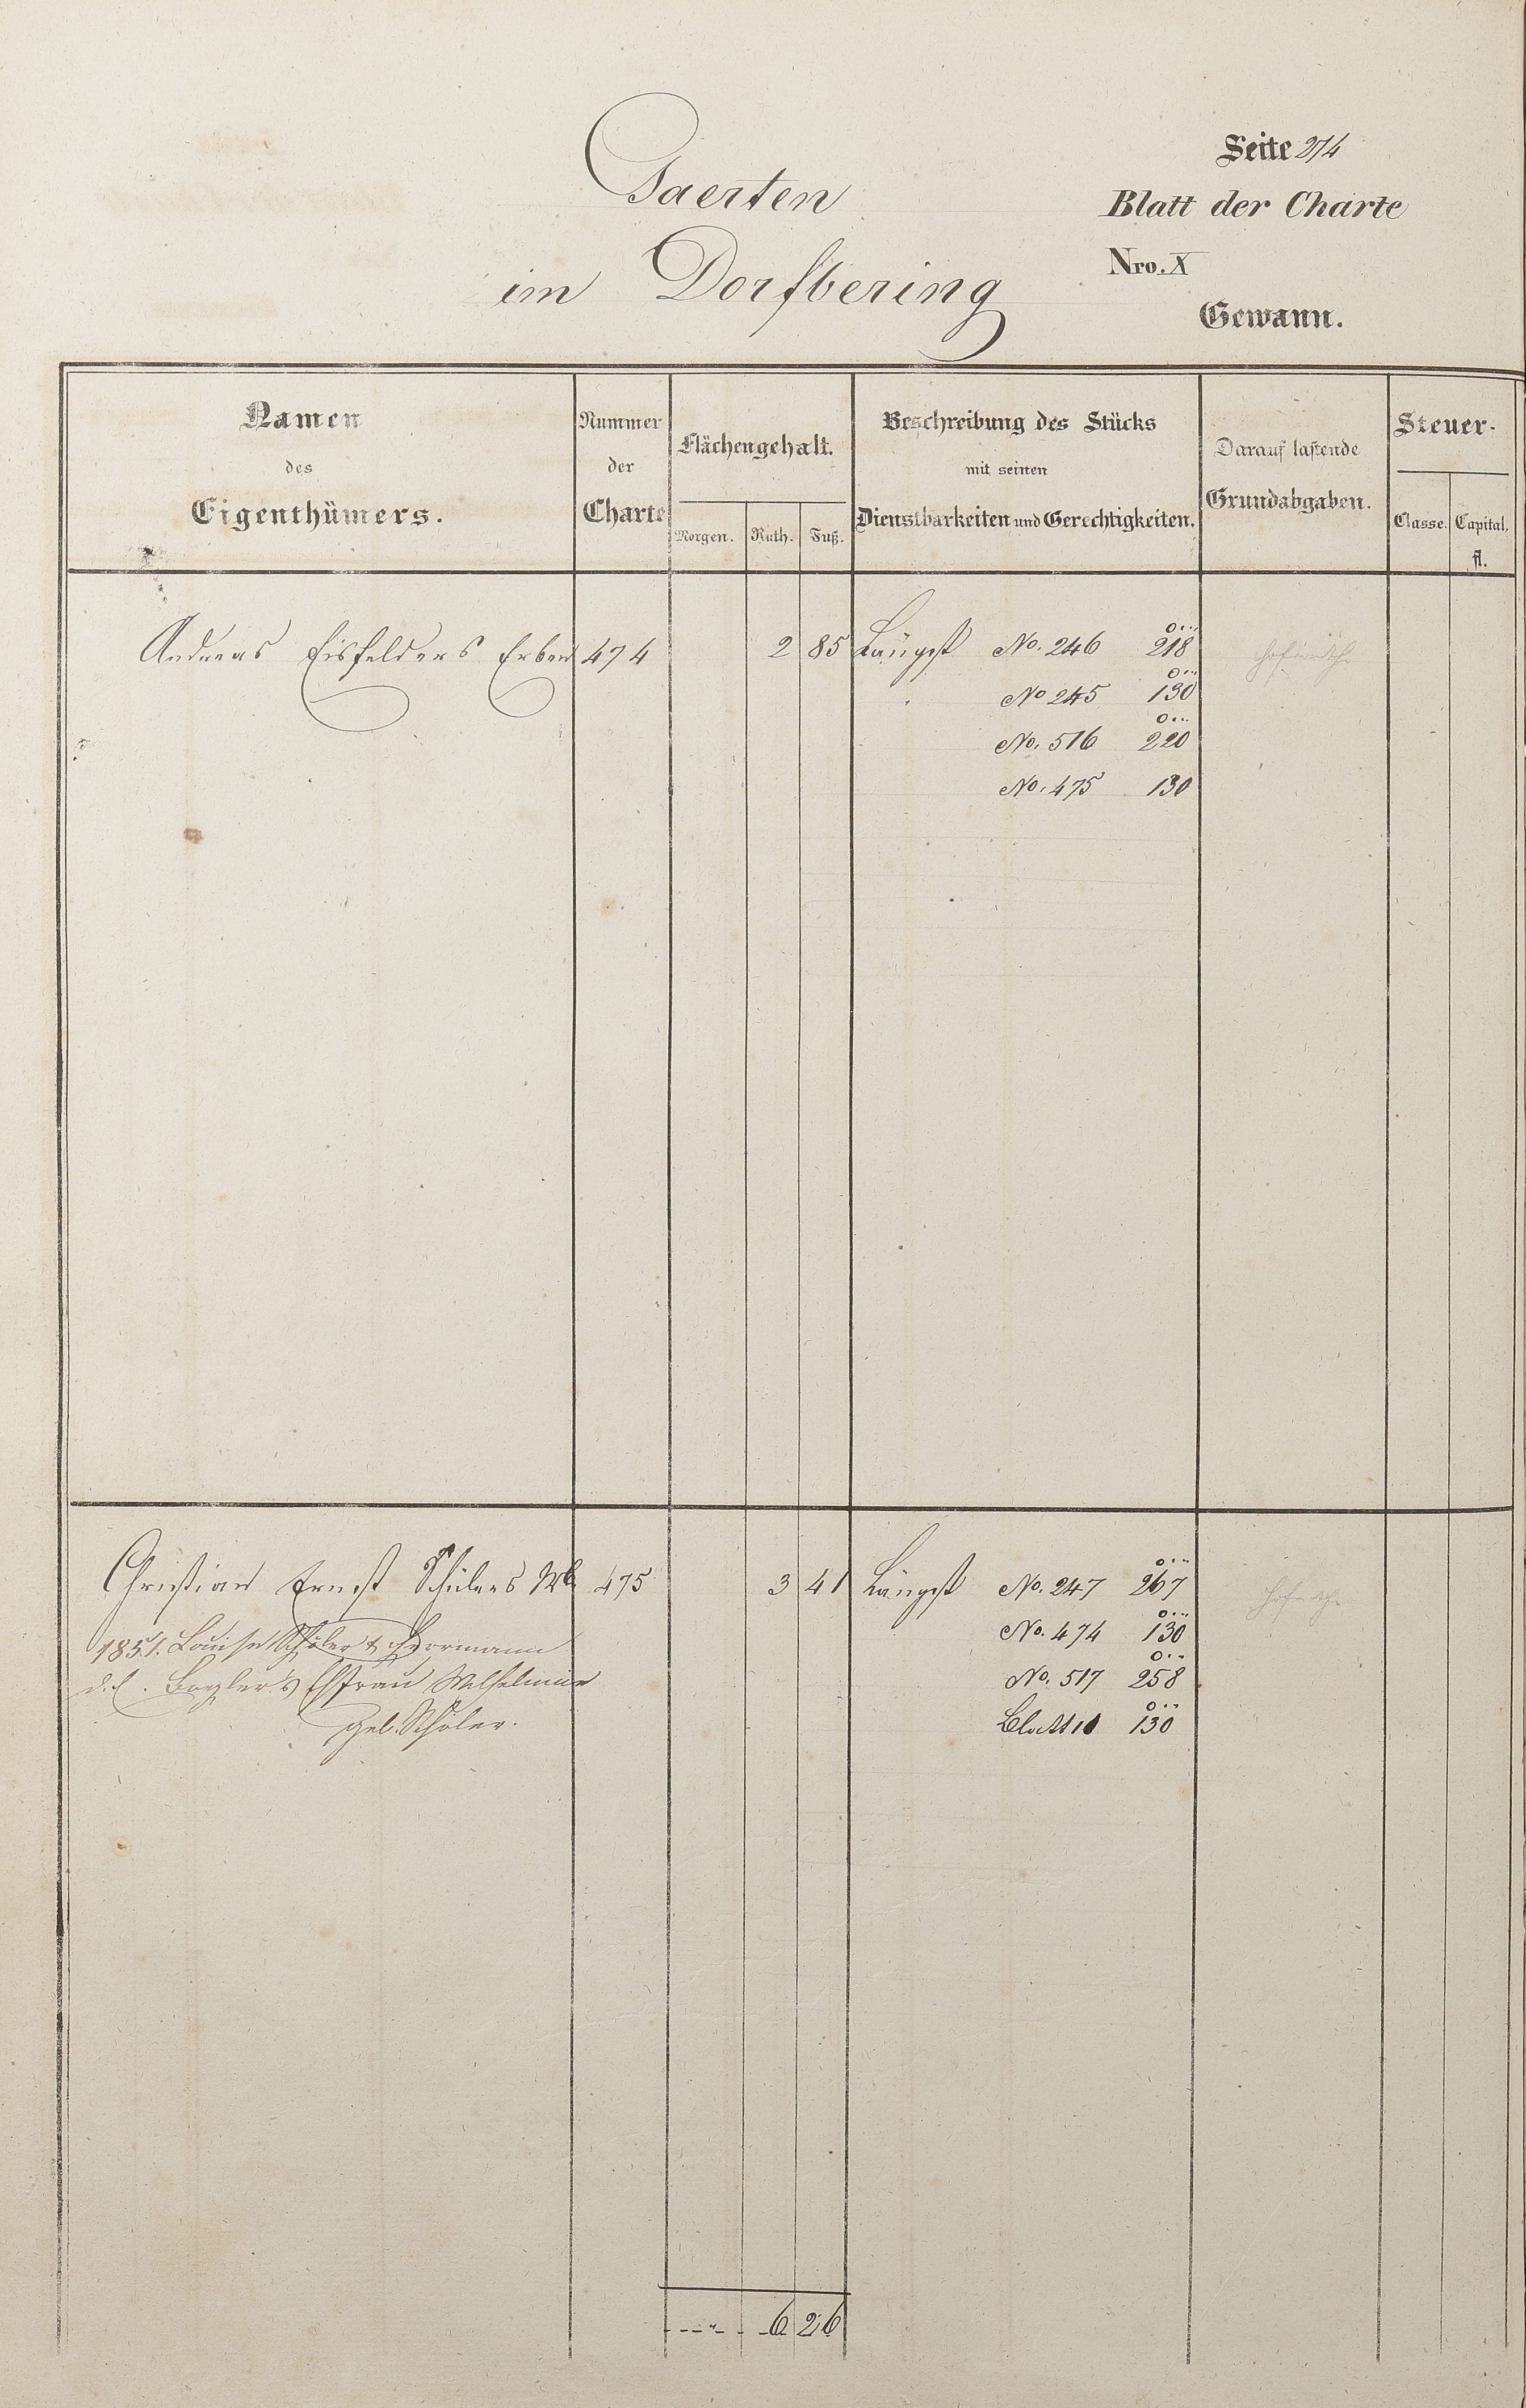 Seite 274
Gaerten
Blatt der Charte
im Dorfbering
Nro. X
Gewann.
Namen des Eigenthümers.
Nummer der Charte
Flächengehalt.
Morgen. Ruth. Fuß.
Beschreibung des Stücks mit seinen Dienstbarkeiten und Gerechtigkeiten.
Darauf lastende Grundabgaben.
Steuer-
Classe. Capital. fl.
Andreas Eisfelders Erben 474 2 85 Längst No. 246 218
No 245 130
No. 516 220
No. 475 130
Christian Ernst Schülers Wb 475 3 41 Längst No. 247 267
1851. Louise Schöler &
No. 474 130
Ehfrau Wilhelmine
No. 517 258
geb. Schöler.
Blatt 10 130
6 26